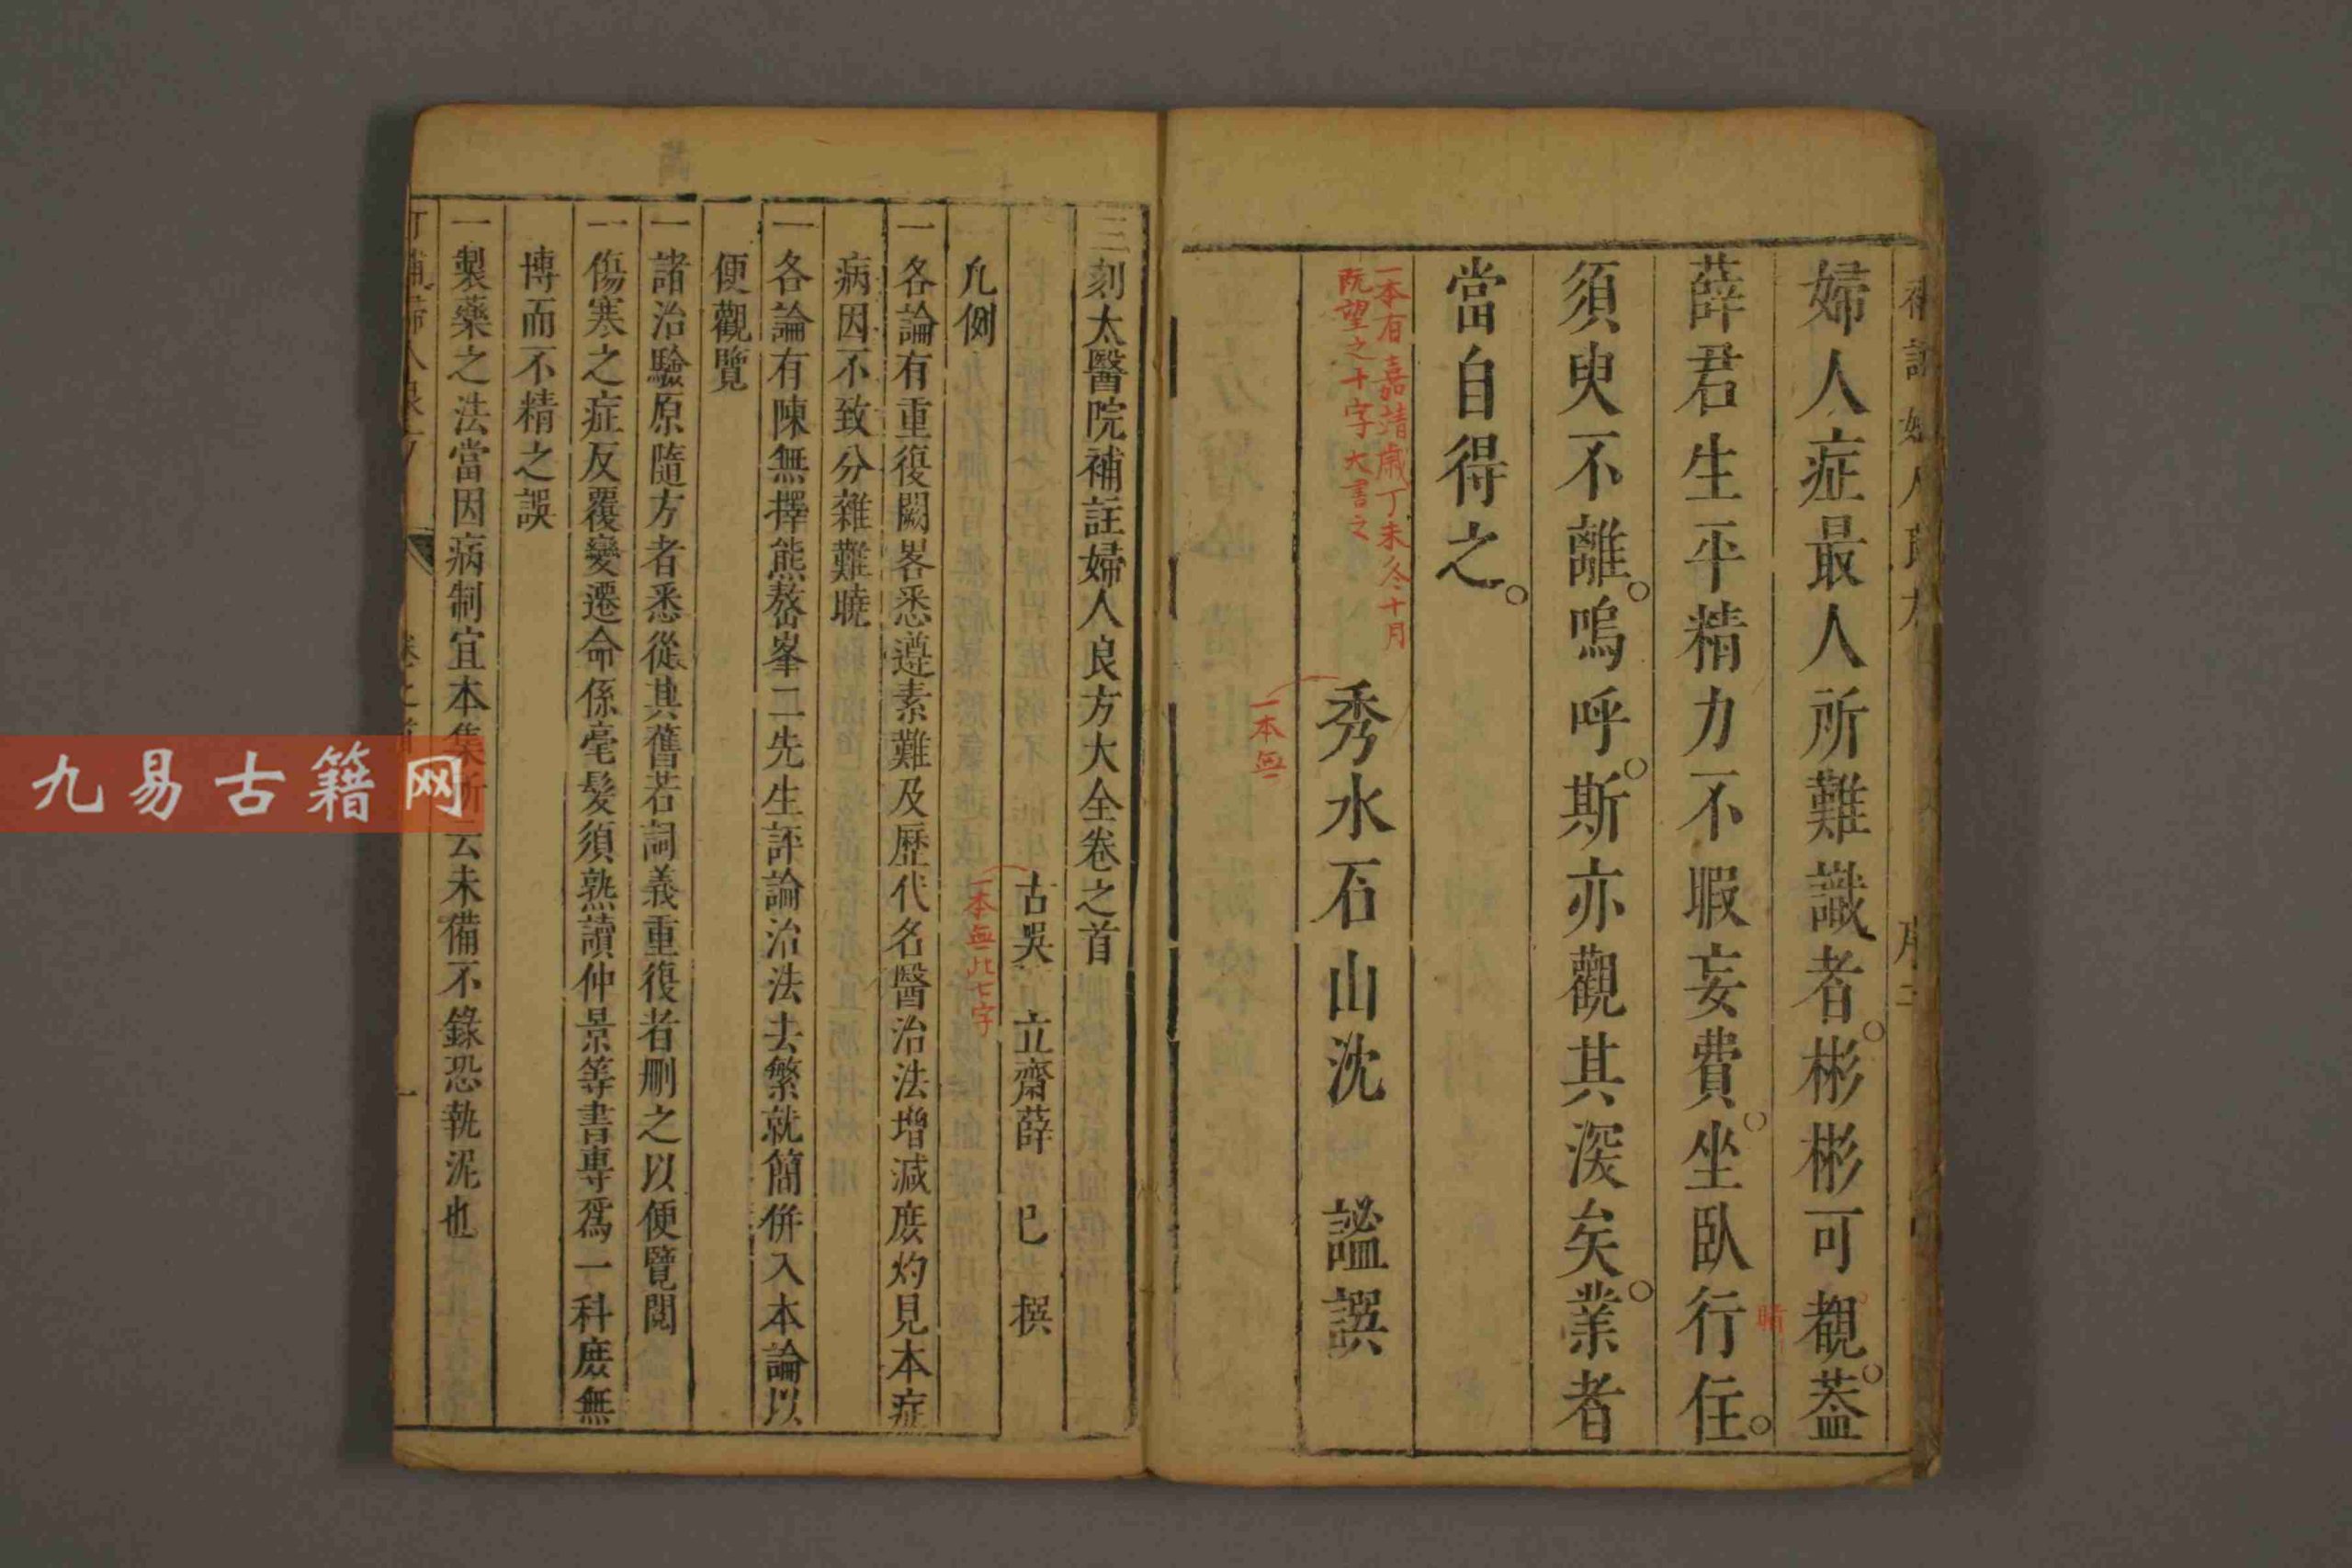 婦人症最人所難識者彬彬可覩葢
薛君生平精力不暇妄費坐臥行住
須臾不離嗚呼斯亦觀其深矣業者
當自得之
一本有嘉靖歲丁未冬十月
既望之十字大書之
秀水石山沈謐譔
一本無
三刻太醫院補註婦人良方大全卷之首
古吳立齋薛己撰
一本無此七字
凡例
一各論有重復闕畧悉遵素難及歷代名醫治法增減庶灼見本症
病因不致分雜難曉
一各論有陳無擇熊鰲峯二先生評論治法去繁就簡併入本論以
便觀覽
一諸治驗原隨方者悉從其舊若詞義重復者刪之以便覽閱
一傷寒之症反覆變遷命係毫髮須熟讀仲景等書專爲一科庶無
博而不精之誤
一製藥之法當因病制宜本集所云未備不錄恐執泥也
九易古籍网